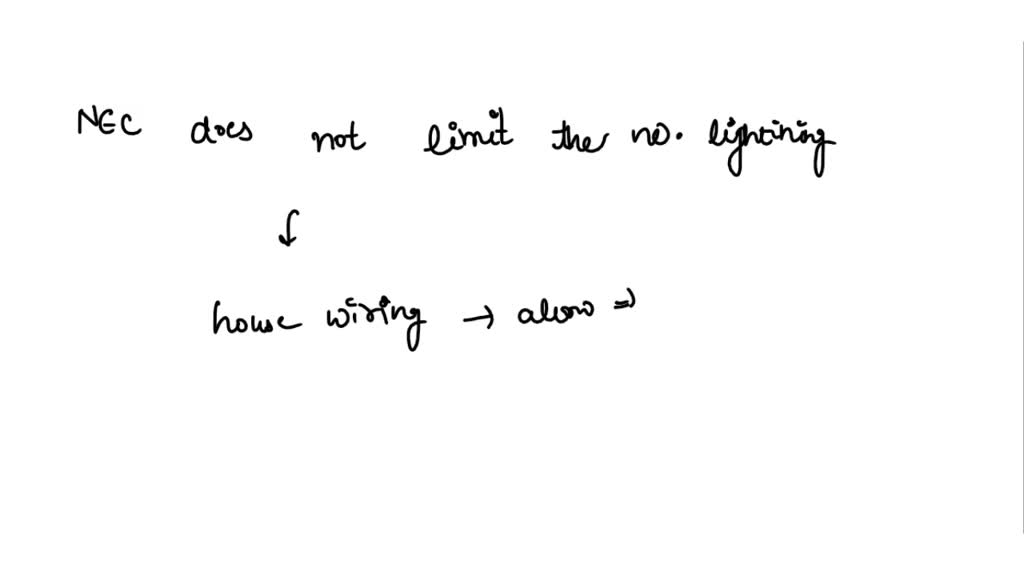 NEC does not limit the no. lightining
↓
house wiring → alow ⇒